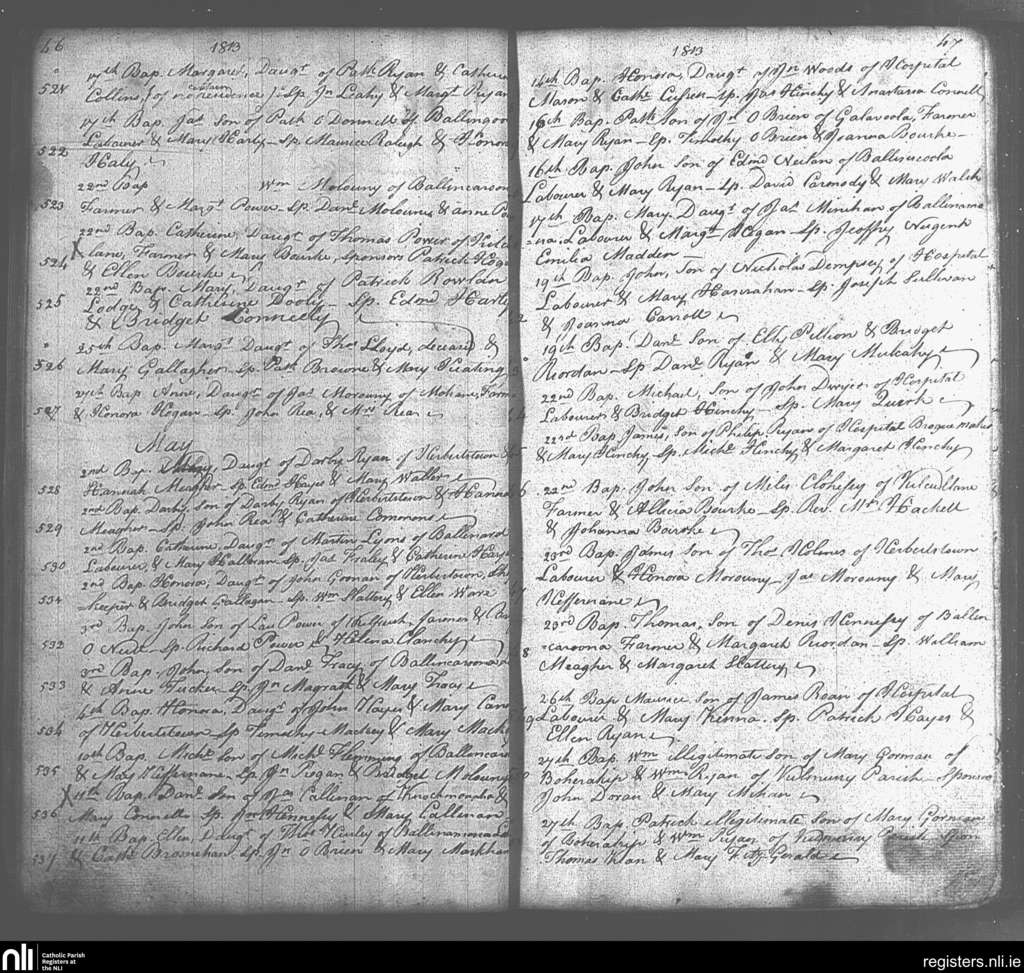 46
1813
17th Bap. Margaret, Daugt of Patk Ryan & Catherine
521
Collins, (of no certain residence) Sp. Jn Leahy & Margt Ryan
17th Bap. Jas Son of Patk O Donnell of Ballingoo
Labourer & Mary Harty - Sp. Maurice Raleigh & Honor
522
Haly
22nd Bap Wm Molouny of Ballincaroon
523
Farmer & Margt Power - Sp. Danl Molouny & Anne Po
22nd Bap. Catherine, Daugt of Thomas Power of
X lane, Farmer & Mary Bourke, Sponsors Patrick Hoga
524
& Ellen Bourke
22nd Bap. Mary, Daugt of Patrick Rowlan
525
Lodge & Catherine Dooly - Sp. Edmd Harty
& Bridget Connelly
25th Bap. Margt Daugt of Thos Lloyd, deceased &
526
Mary Gallagher - Sp. Patk Browne & Mary Keating
27th Bap. Anne, Daugt of Jas Morouny of Mohane, Farm
527
& Honora Hogan - Sp. John Rea, & Mrs Rea
May
2nd Bap. Mary, Daugt of Darby Ryan of Herbertstown &
528
Hannah Meagher - Sp. Edmd Hayes & Mary Waller
2nd Bap. Darby, Son of Darby Ryan of Herbertstown & Hanna
529
Meagher - Sp. John Rea & Catherine Commons
2nd Bap. Catherine, Daugt of Martin Lyons of Ballinard
530
Labourer, & Mary Halloran - Sp. Jas Fraley & Catherine Harty
2nd Bap. Honora, Daugt of John Gorman of Herbertown, Sh
531
keeper & Bridget Gallagan - Sp. Wm Slattery & Ellen Ware
3rd Bap. John Son of Lau Power of Kilfrush, farmer &
532
O Neill - Sp. Richard Power & Helena Clanchy
3rd Bap. John, Son of Danl Tracy of Ballincaroona
533
& Anne Tucker - Sp. Jn Magrath & Mary Tracy
4th Bap. Honora, Daugt of John Hayes & Mary Can
534
of Herbertstown - Sp. Timothy Mackey & Mary Mack
10th Bap. Michl Son of Michl Flemming of Ballincaro
535
& Mary Heffernane - Sp. Jn Hogan & Bridget Molouny
X 11th Bap. Danl Son of Jas Callinan of Knockmonaha &
536
Mary Connell - Sp. Jn Hennefsy & Mary Callinan
11th Bap. Ellen Daugt of Thos Hurley of Ballinamona La
537
& Cathe Brosnehan - Sp. Jn O Brien & Mary Markham
47
1813
14th Bap. Honora, Daugt of Jn Woods of Hospital
Mason & Cathe Cussen - Sp. Jas Hinchy & Anastasia Connell
16th Bap. Patk Son of Jn O Brien of Galavoola, Farmer
& Mary Ryan - Sp. Timothy O Brien & Joanna Bourke -
16th Bap. John Son of Edmd Neilan of Ballinscoola
Labourer & Mary Ryan - Sp. David Carmody & Mary Walsh
17th Bap. Mary, Daugt of Jas Minihan of Ballinamo
-na, Labourer & Margt Hogan - Sp. Jeoffry Nugent
Emilia Madden -
19th Bap. John, Son of Nicholas Dempsey of Hospital
Labourer & Mary Hanrahan - Sp. Joseph Sullivan
& Joanna Carroll
19th Bap. Danl Son of Elly Pillion & Bridget
Riordan - Sp. Danl Ryan & Mary Mulcahy
22nd Bap. Michael, Son of John Dwyer of Hospital
Labourer & Bridget Hinchy - Sp. Mary Quirk
22nd Bap. James, Son of Philip Ryan of Hospital Brogue maker
& Mary Hinchy - Sp. Michl Hinchy & Margaret Hinchy
22nd Bap. John Son of Miles Clohefsy of Kilcullane
Farmer & Alicia Bourke - Sp. Rev. Mr Hackett
& Johanna Bourke
23rd Bap. James Son of Thos Holmes of Herbertstown
Labourer & Honora Morouny - Jas Morouny & Mary
Heffernane
23rd Bap. Thomas, Son of Denis Hennefsy of Ballin
-caroona Farmer & Margaret Riordan - Sp. William
Meagher & Margaret Slattery
26th Bap. Maurice Son of James Roan of Hospital
Labourer & Mary Kenna. Sp. Patrick Hayes &
Ellen Ryan
27th Bap. Wm illegitimate Son of Mary Gorman of
Boherahip & Wm Ryan of Kilmurry Parish - Sponsors
John Doran & Mary Mihan
27th Bap. Patrick illegitimate Son of Mary Gorman
of Boherahip & Wm Ryan of Kilmurray Parish Spon
Thomas Kean & Mary Fitz Gerald
nli
Catholic Parish
Registers at
the NLI
registers.nli.ie